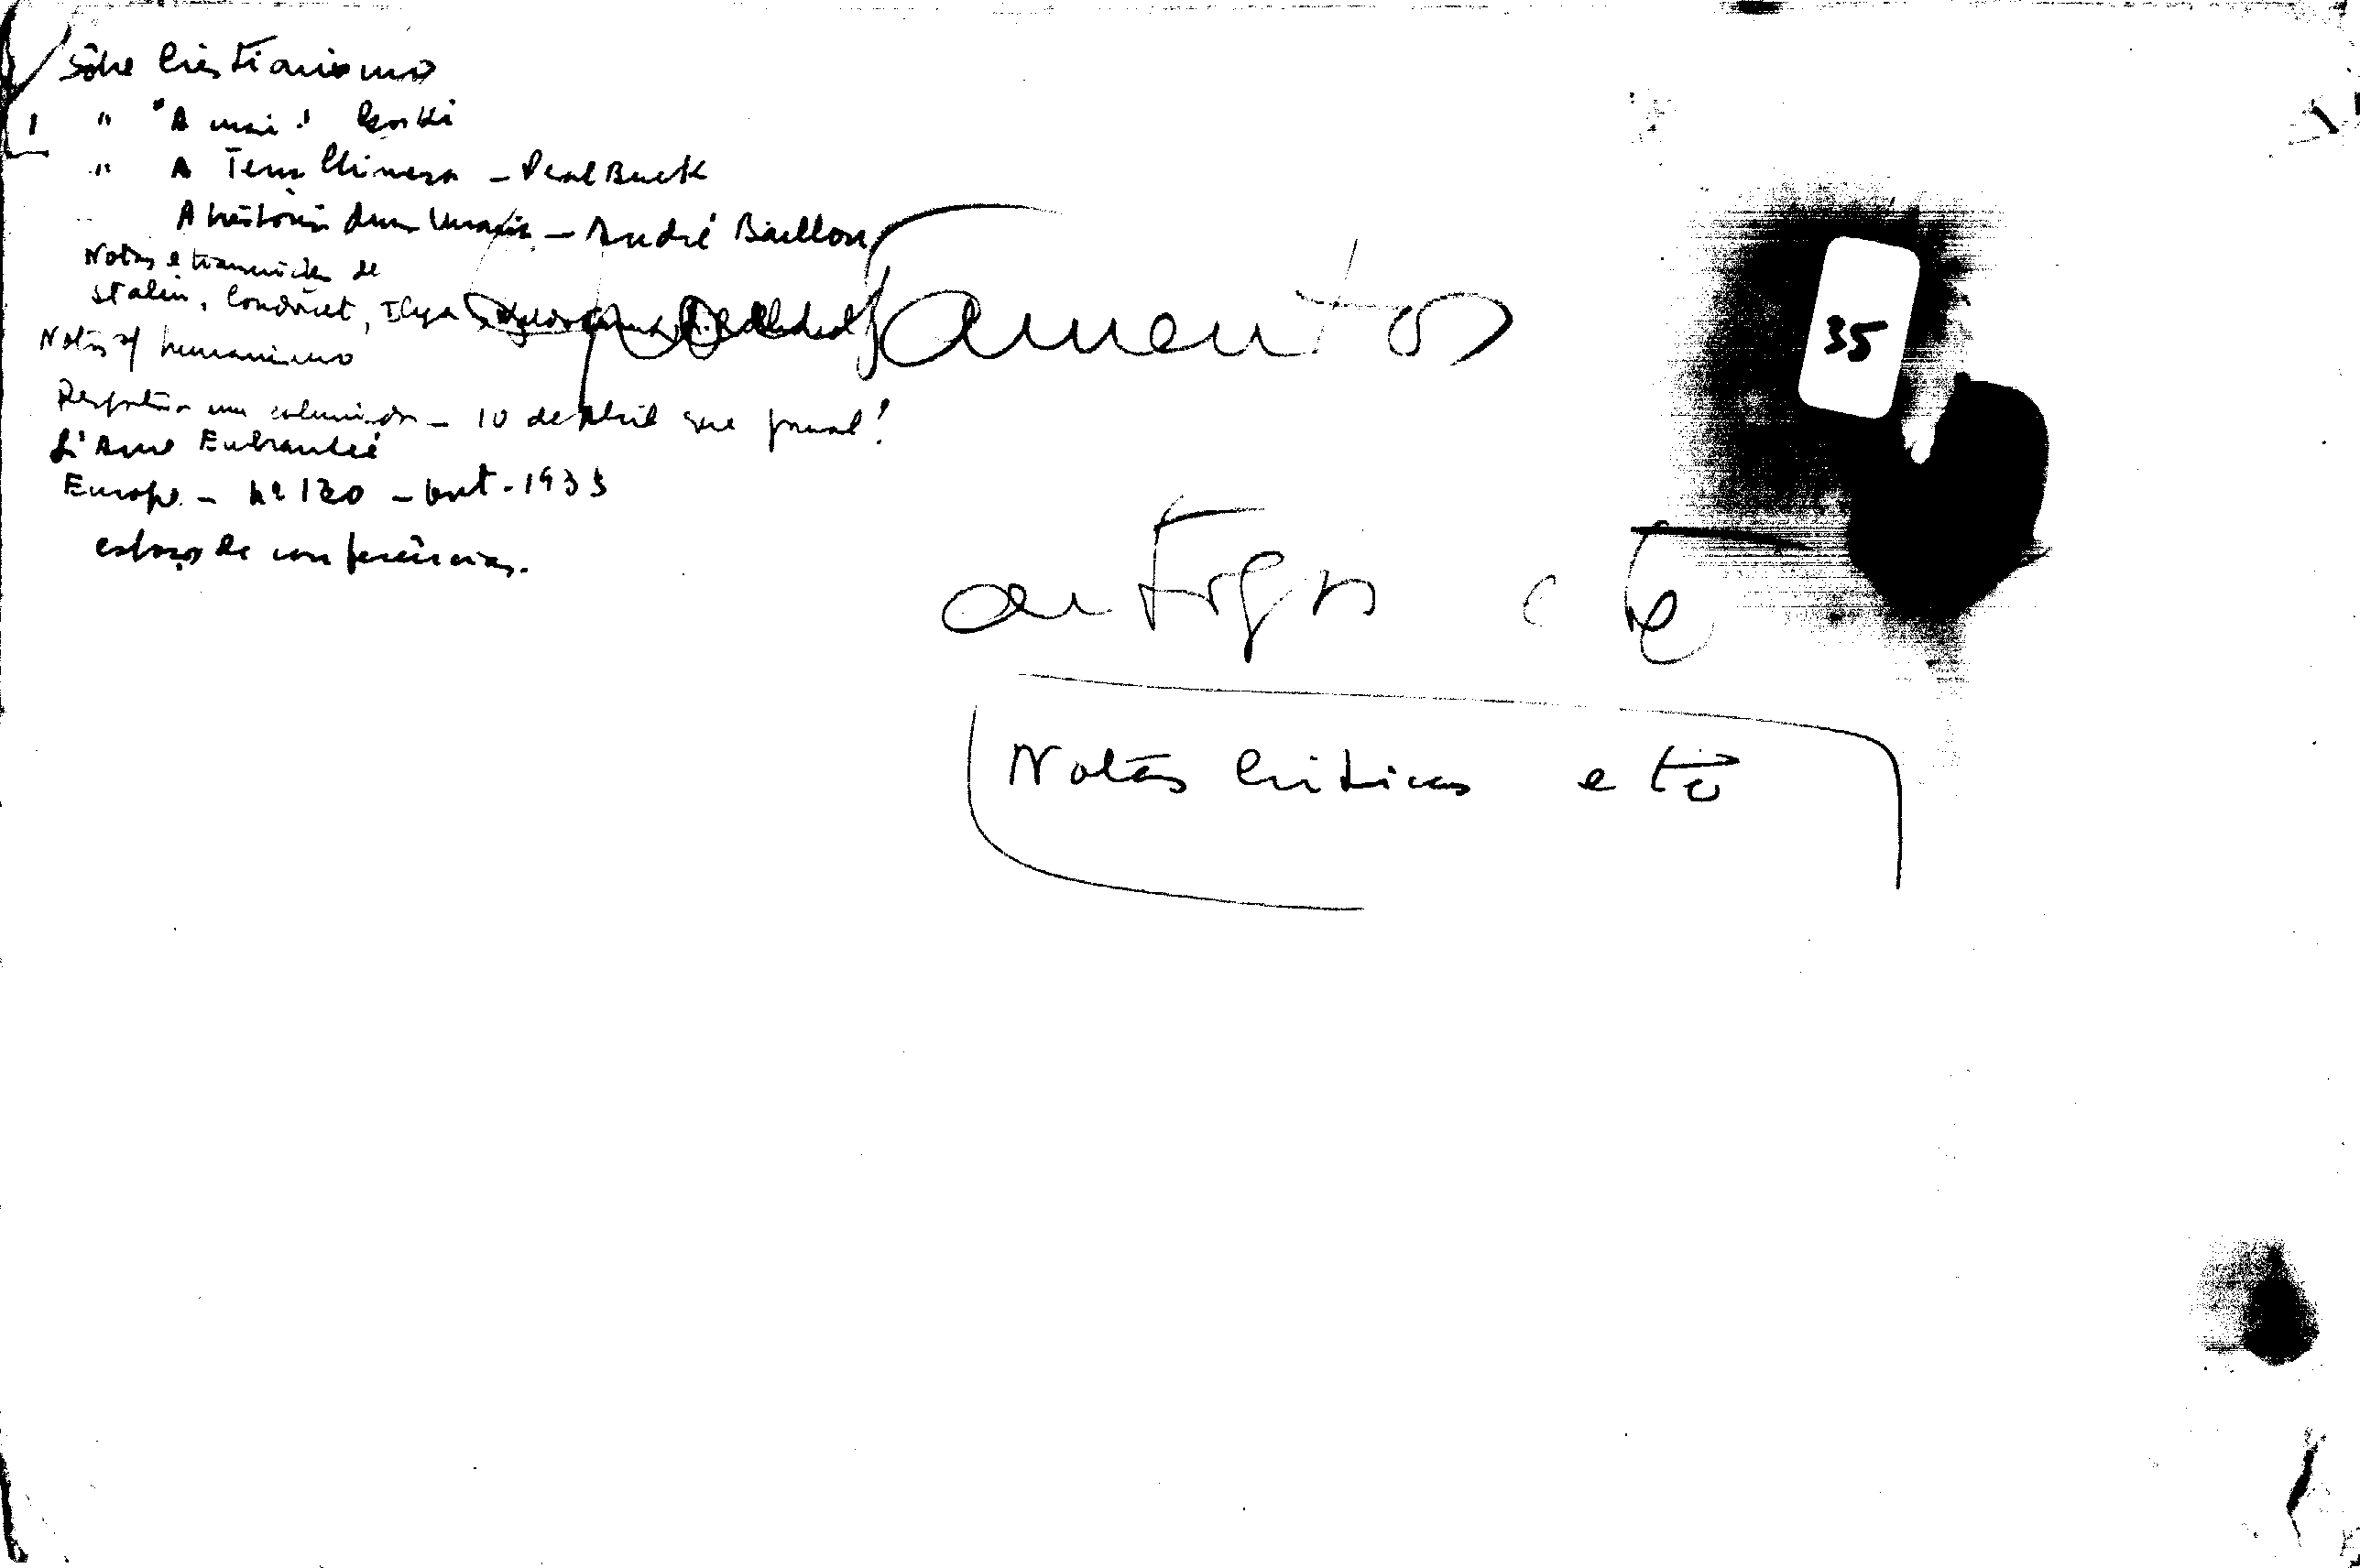 Sôbre Cristianismo
" "A mãi" Gorki
" A Terra Chinesa - Pearl Buck
A história duma Maria - André Baillon
Notas e transcrições de
Stalin, Condorcet, Ilya
Notas s/ humanismo
Resposta a um caluniador - 10 de Abril que jornal!
L'Ame Enchantée
Europe - Nº 130 - Out. 1933
esboços de conferências.
Apontamentos
antigos
Notas Criticas etc
35